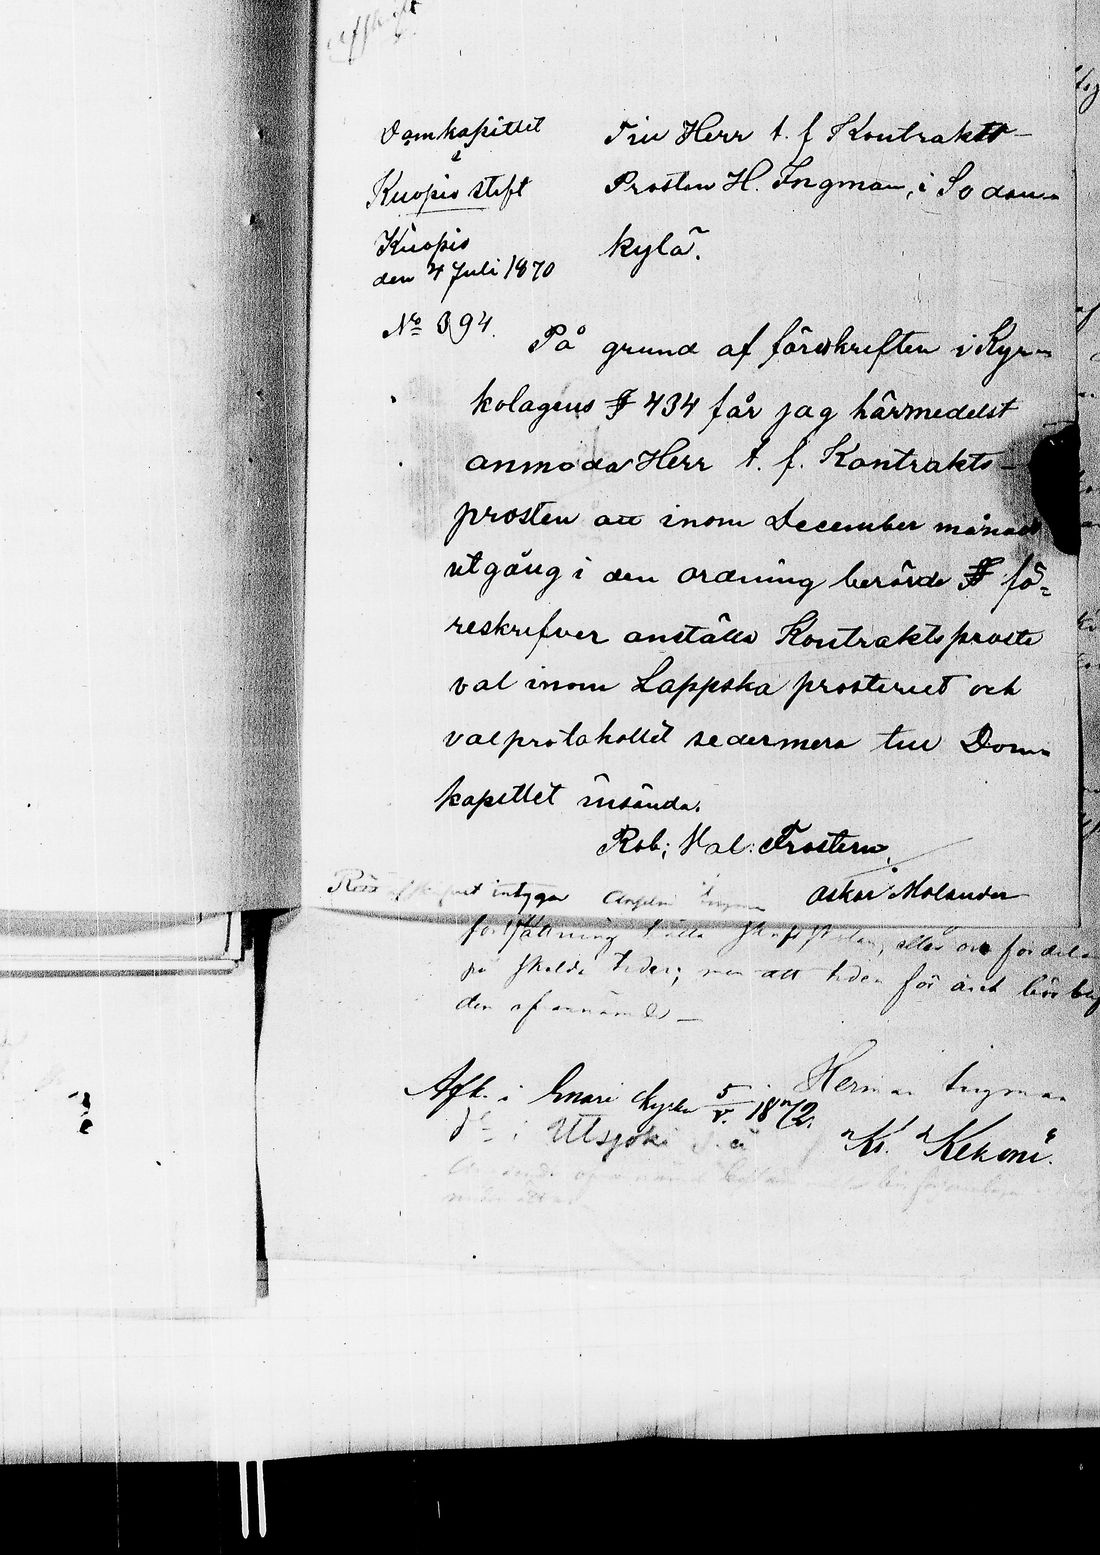 Afskrift
Domkapitlet
i
Kuopio stift
Kuopio
den 4 Juli 1870
No 394.
Till Herr t. f. Kontrakts-
Prosten H. Ingman, i Sodan-
kylä.
På grund af föreskriften i Kyr-
kolagens § 434 får jag härmedelst
anmoda Herr t. f. Kontrakts-
prosten att inom December månads
utgång i den ordning berörde § fö-
reskrifver anställa Kontraktsprosts
val inom Lappska prosteriet och
valprotokollet sedermera till Dom-
kapitlet insända.
Rob. Val. Frosterus.
Oskar Molander
Rätt afskrifvet intygar
fortsättning
på skilda tider; men att tiden för året bör
den
Herman Ingman
Afk. i Enari kyrka 5/V. 1872.
i Utsjoki